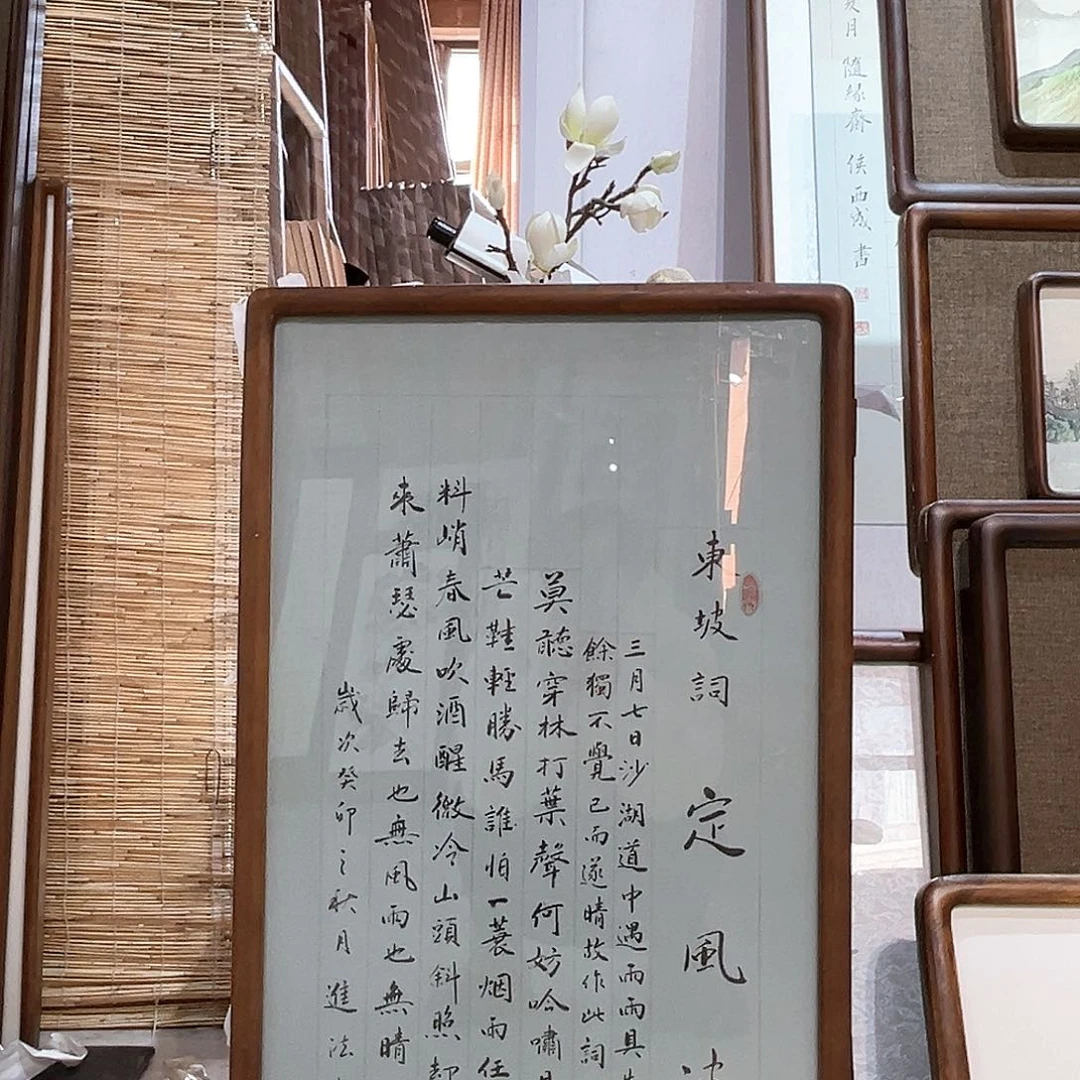 東坡詞 定風
三月七日沙湖道中遇雨雨具
餘獨不覺已而遂晴故作此詞
莫聽穿林打葉聲何妨吟嘯
芒鞋輕勝馬誰怕一蓑烟雨任
料峭春風吹酒醒微冷山頭斜照却
來蕭瑟處歸去也無風雨也無晴
歲次癸卯之秋月進法
月 隨緣齋 侯西成書